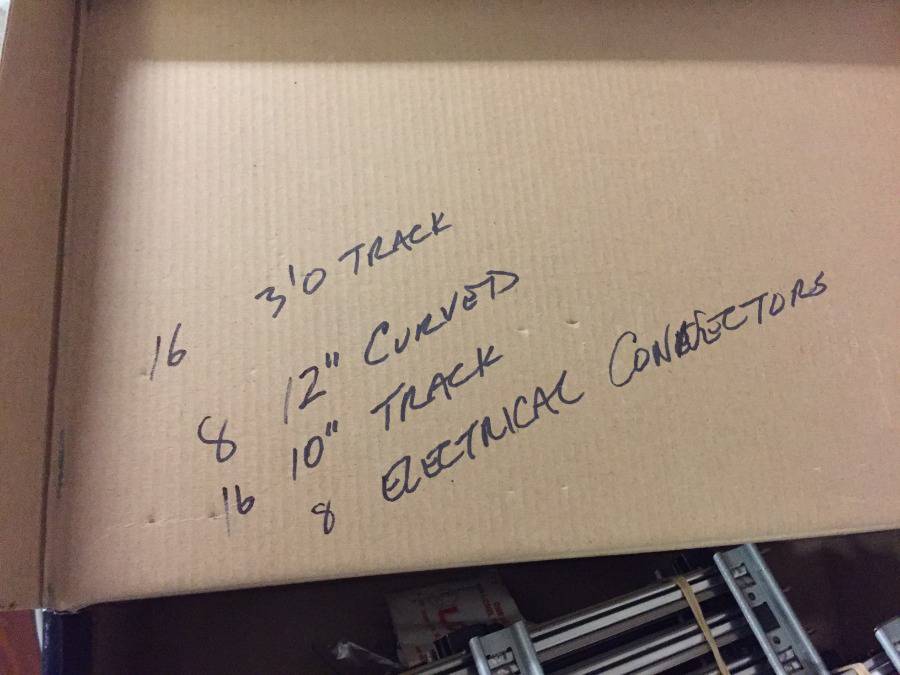 16 3'0 TRACK
8 12" CURVED
16 10" TRACK
8 ELECTRICAL CONNECTORS